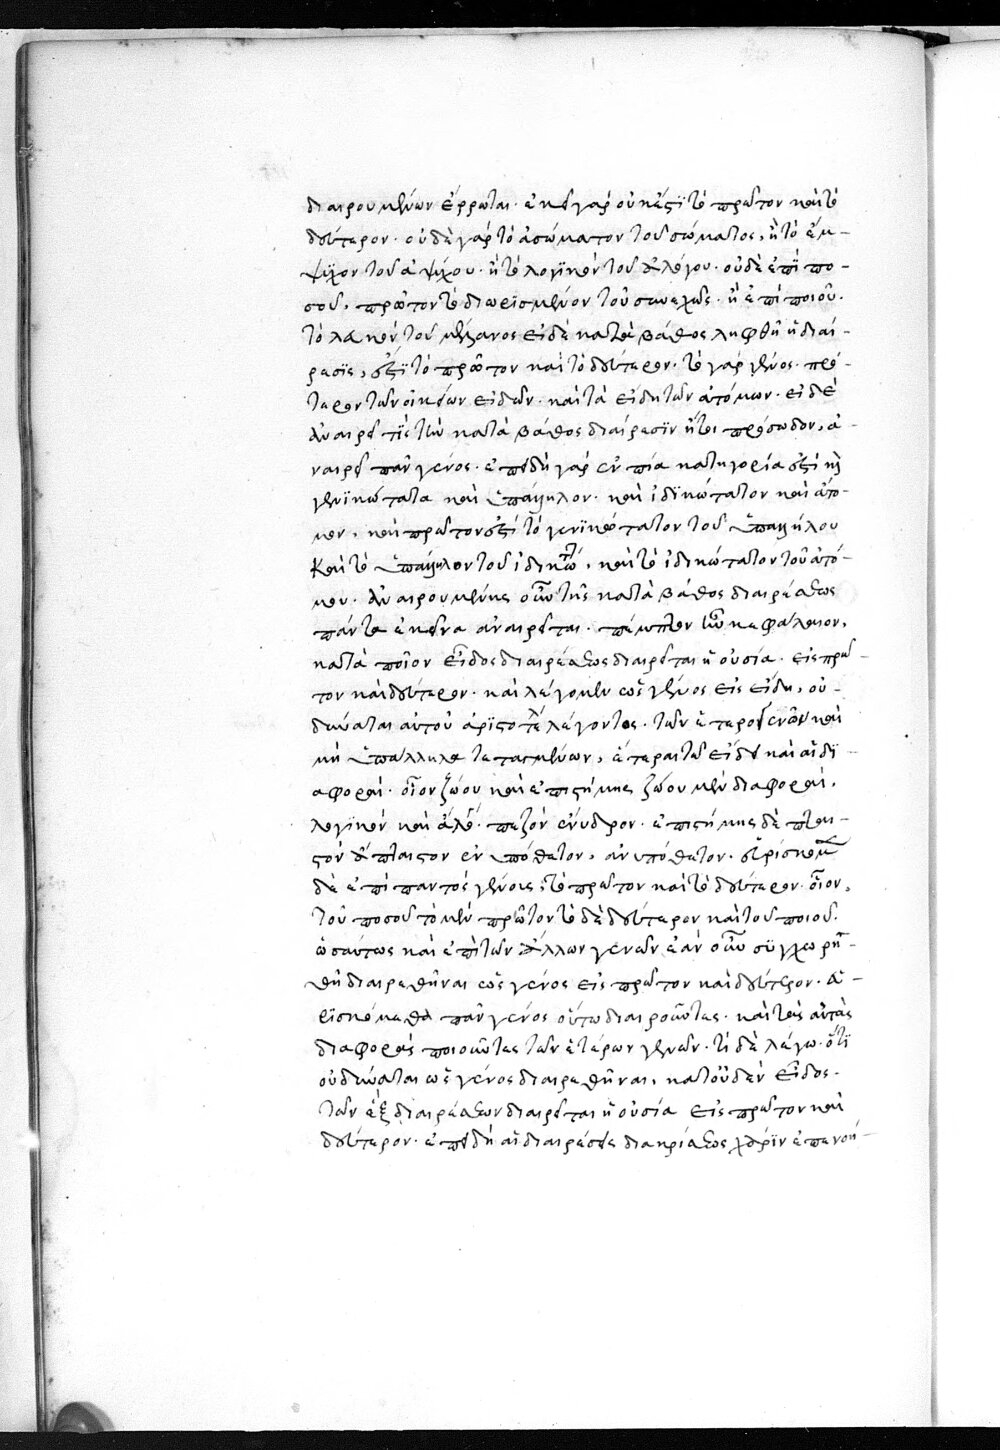 διαιρουμένων ἔρρωται· ἐκεῖ γὰρ οὐκ ἔστϊ τὸ πρῶτον καὶ τὸ
δεύτερον· οὐδὲ γὰρ τὸ ἀσώματον τοῦ σώματος, ἢ τὸ ἔμ-
ψϋχον τοῦ ἀψύχου· ἢ τὸ λογϊκὸν τοῦ ἀλόγου· οὐδὲ ἐπῒ πο-
σοῦ, πρῶτον τὸ διωρϊσμένον τοῦ συνεχῶς· ἢ ἐπὶ ποιοῦ·
τὸ λευκὸν τοῦ μέλανος εἰ δὲ κατὰ βάθος ληφθῆ ἡ διαί-
ρεσϊς, ἐστῒ τὸ πρῶτον καὶ τὸ δεύτερον· τὸ γὰρ γένος· πρό-
τερον τῶν οἰκείων εἰδῶν· καὶ τὰ εἴδη τῶν ἀτόμων· εἰ δὲ
ἀναιρεῖ τϊς τὴν κατὰ βάθος διαίρεσϊν ἤτοι πρόσωδον, ἀ-
ναιρεῖ πᾶν γένος· ἐπειδὴ γὰρ ἐν μία κατηγορία ἐστὶ καὶ
γενϊκώτατα καὶ ὑπάλληλον· καὶ ἰδϊκώτατον καὶ ἄτο-
μον, καὶ πρῶτον ἐστὶ τὸ γενϊκότατον τοῦ ὑπαλλήλου
Καὶ τὸ ὑπάλληλον τοῦ ἰδικωτ, καὶ τὸ ἰδικώτατον τοῦ ἀτό-
μου· ἀναιρουμένης οὖν τῆς κατὰ βάθος διαιρέσεως
πάντα ἐκεῖνα ἀναιρεῖται· πέμπτον οὖν κεφάλαιον,
κατὰ ποῖον εἶδος διαιρέσεως διαιρεῖται ἡ οὐσία· εἰς πρῶ-
τον καὶ δεύτερον· καὶ λέγομεν ὡς γένος εἰς εἴδη, οὐ-
δύναται αὐτοῦ ἀριστοτέλ λέγοντος· τῶν ἑτερογενῶν καὶ
μὴ ὑπάλληλα τεταγμένων, ἕτεραι τῶ εἴδει καὶ αἱ δϊ-
αφοραί· οἷον ζώου καὶ ἐπιστήμης ζώου μὲν διαφοραὶ,
λογϊκὸν καὶ ἄλο· πεζὸν ἔνυδρον· ἐπιστήμης δὲ πται-
στὸν ἄπταιστον ἐν ὑπόθετον, ἀνυπόθετον· εὑρίσκομεν
δὲ ἐπὶ παντὸς γένους, τὸ πρῶτον καὶ τὸ δεύτερον· οἷον,
τοῦ ποσοῦ τὸ μὲν πρῶτον τὸ δὲ δεύτερον καὶ τοῦ ποιοῦ·
ὡσαύτως καὶ ἐπὶ τῶν ἄλλων γενῶν ἐὰν οὖν σϋγχωρη-
θῆ διαιρεθῆναι ὡς γένος εἰς πρῶτον καὶ δεύτερον· εὑ-
ρϊσκόμεθα πᾶν γένος οὕτω διαιροῦντες· καὶ τὰς αὐτὰς
διαφορὰς ποιοῦντες τῶν ἑτέρων γενῶν· τί δὲ λέγω· ὅτϊ
οὐ δύναται ὡς γένος διαιρεθῆναι, κατ' οὐδὲν εἶδος·
τῶν ἓξ διαιρέσεων διαιρεῖται ἡ οὐσία εἰς πρῶτον καὶ
δεύτερον· ἐπειδὴ αἱ διαιρέσεις διακρίσεως χάρϊν ἐπενοή-